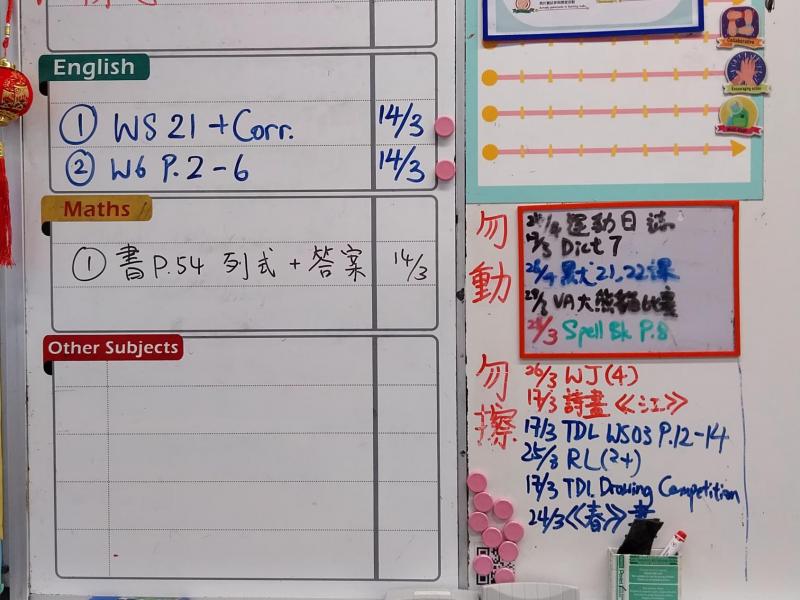 English
① WS 21 + Corr. 14/3
② WB P.2-6 14/3
Maths
① 書 P.54 列式 + 答案 14/3
Other Subjects
Collaborative
勿動
運動日誌
Dict 7
默犬21,22課
VA大熊貓比賽
Spell Bk P.8
勿擦
26/3 WJ(4)
17/3 詩畫《江》
17/3 TDL WS03 P.12-14
25/3 RL(2+)
17/3 TDL Drawing Competition
24/3《春》書